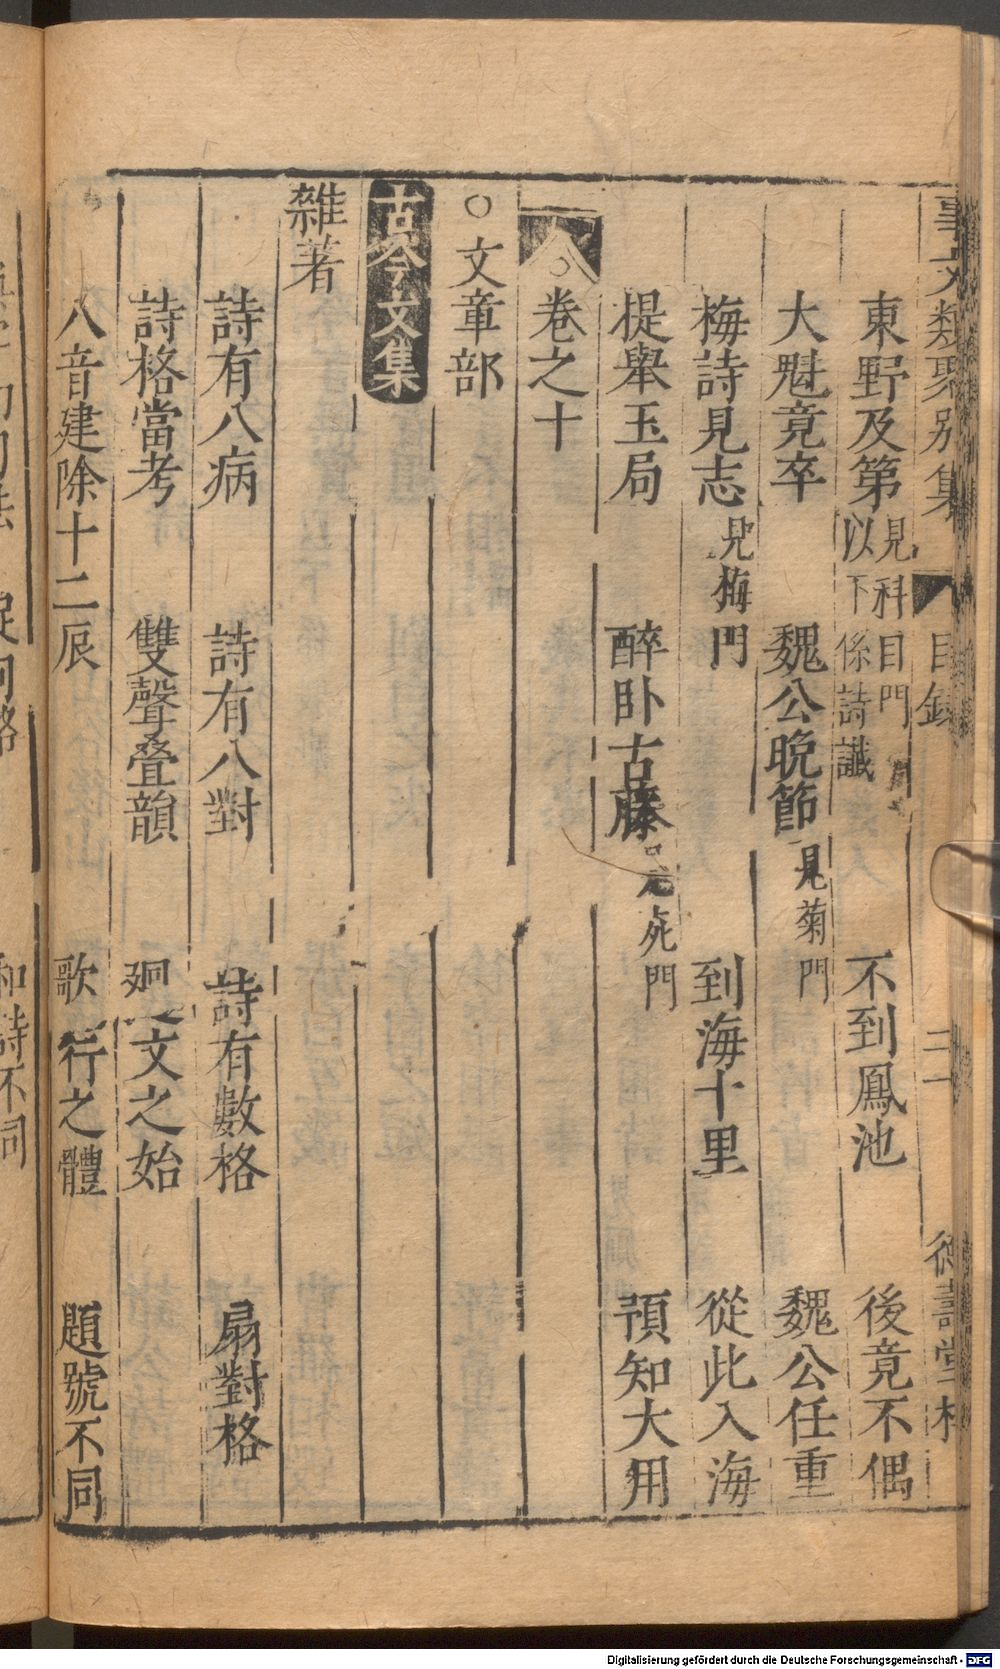 事文類聚別集 目錄 二十 德壽堂梓
東野及第 見科目門以下係詩讖 不到鳳池 後竟不偶
大魁竟卒 魏公晚節 見菊門 魏公任重
梅詩見志 見梅門 到海十里 從此入海
提舉玉局 醉卧古藤 見死門 預知大用
卷之十
○文章部
古今文集
雜著
詩有八病 詩有八對 詩有數格 扇對格
詩格當考 雙聲叠韻 廻文之始
八音建除十二辰 歌行之體 題號不同
和詩不同
Digitalisierung gefördert durch die Deutsche Forschungsgemeinschaft - DFG